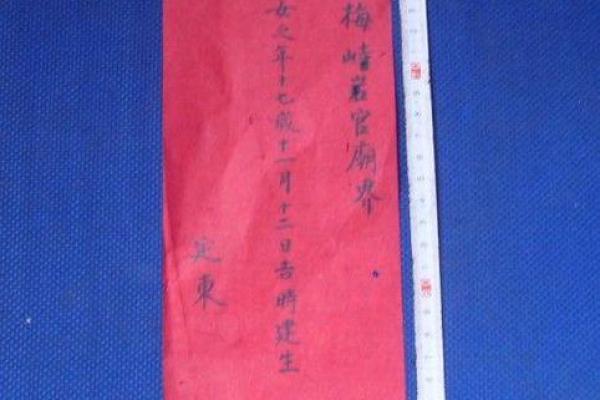 梅崎岩宫廟界
女之年十七歲十一月十二日吉時建生
定東